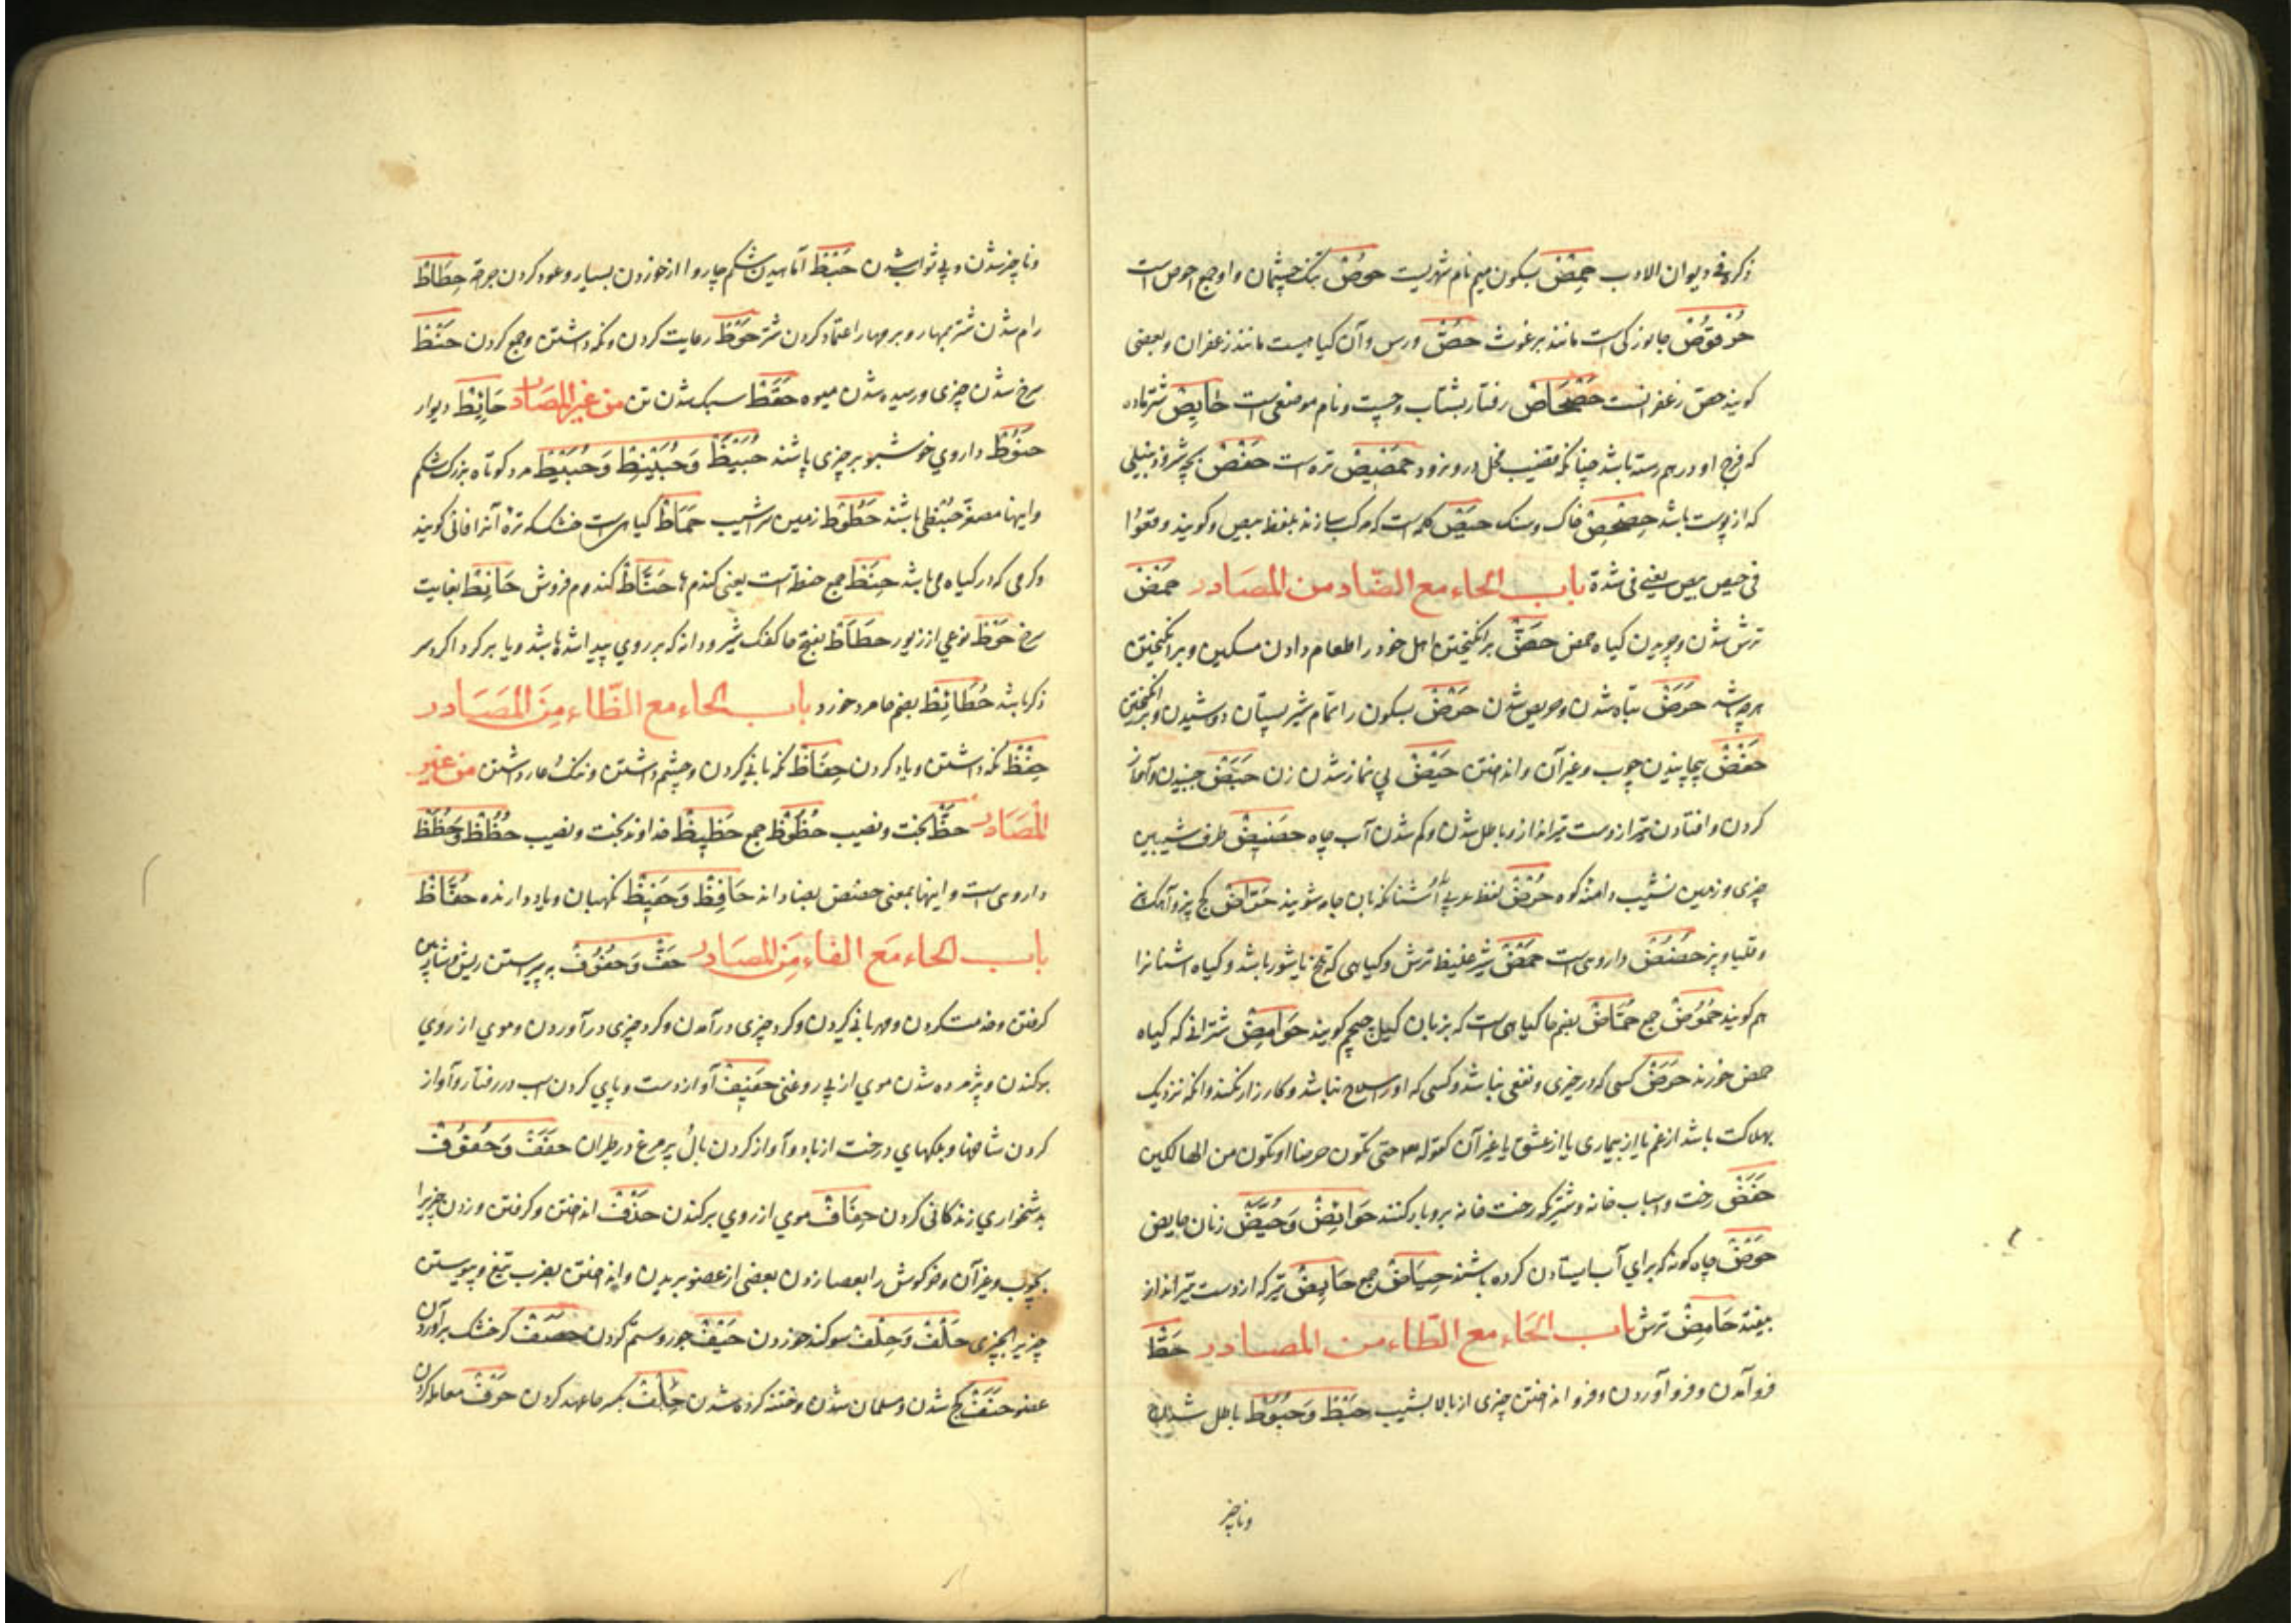 ذکره فی دیوان الادب حَمِصْ بسکون میم نام شهریست حُوصْ تنک چشمان و او جمع احوص است
حُرْقُوصْ جانورکی است مانند برغوث حُصّ ورس و آن کیاهیست مانند زعفران و بعضی
کویند حص زعفرانست حَصْحَاصْ رفتار بشتاب و چست و نام موضعی است حَایِصْ شتر ماده
که فرج او در هم رسته باشد چنانکه قضیب فحل درو نرود حَمَصِیصْ تره است حَفْصْ بچه شیر و زنبیلی
که از پوست باشد حِصْحِصْ خاک و سنک حَیْصْ کلمه است که مرکب سازند بلفظ بیص و کویند وقعوا
فی حیص بیص یعنی فی شدة باب الحاء مع الضّاد من المصَادر حمْضْ
ترش شدن و چریدن کیاه حمض حَضّ برانکیختن اهل خود را طعام دادن مسکین و برانکیختن
هرچه باشد حَرَضْ تباه شدن و مریض شدن حَرْضْ بسکون را تمام شیر پستان دوشیدن و برانکیختن
حَفْضْ پیچانیدن چوب و غیر آن و انداختن حَیْضْ بی نماز شدن زن حَبَضْ جنبیدن و آواز
کردن و افتادن تیر از دست تیرانداز و باطل شدن و کم شدن آب چاه حَضِیضْ طرف شیبین
چیزی و زمین نشیب دامنه کوه حُرُضْ لفظ عربی اشنانکه بآن جامه شویند حَرّاضْ کچ پز و آهک پز
و قلیاو پز حُضُضْ داروی است حَمْضْ شیر غلیظ ترش و کیاهی که تلخ یا شور باشد و کیاه اشنانرا
هم کویند حُمُوضْ جمع حُمّاضْ بضم حا کیاهی است که بزبان کیل چم کویند حَوَامِضْ شترانی که کیاه
حمض خورند حَرَضْ کسی که درو خیری و نفعی نباشد و کسی که او را سلاح نباشد و کارزار نکند و آنکه نزدیک
بهلاکت باشد از غم یا از بیماری یا از عشق یا غیر آن کقوله حتی تکون حرضا او تکون من الهالکین
حَفَضْ رخت و اسباب خانه و شتری که رخت خانه برو بار کنند حَوَائِضْ وَ حُیَّضْ زنان حایض
حَوْضْ چاه کونه که برای آب ایستادن کرده باشند حِیَاضْ جمع حَابِضْ تیر که از دست تیرانداز
بیفتد حَامِضْ ترش باب الحَاء مع الطّاء من المصَادر حَطّ
فرو آمدن و فرو آوردن و فرو انداختن چیزی از بالا بشیب حَبْط وَ حُبُوط باطل شدن
وناچیز
وناچیز شدن و بی ثواب شدن حَبَط آماسیدن شکم چاروا از خوردن بسیار و عود کردن جراحة حِطَاط
رام شدن شتر بمهار و بر مهار اعتماد کردن شتر حَوْط رعایت کردن و نکه داشتن و جمع کردن حَنْط
سرخ شدن چیزی و رسیده شدن میوه حَقَط سبک شدن تن من غیر المصَادر حَائِط دیوار
حَنُوط داروی خوشبو بر چیزی پاشند حُبَیْط وَ حُبَیْنِط وَ حُبَیِّیط مرد کوتاه بزرک شکم
و اینها مصغر حبنطی باشند حَطُوط زمین سراشیب حَمَاط کیاهی است خشک که تره آنرا افانی کویند
و کرمی که در کیاه می باشد حِنَط جمع حنطه است یعنی کندمها حَنَّاط کندم فروش حَانِط بغایت
سرخ حَوْط نوعی از زیور حَطَاط بفتح حا کفک شیر و دانه که بر روی پیدا شده باشد و یا بر کرداکرد سر
ذکر باشد حُطَائِط بضم حا مرد خورد باب الحاء مع الظّاء مِنَ المَصَادر
حِفْظ نکه داشتن و یاد کردن حِفَاظ نکه بانی کردن و چشم داشتن و ننک و عار داشتن من غیر
المَصَادر حَظّ بخت و نصیب حُظُوظ جمع حَظِیظ خداوند بخت و نصیب حُظُظ وَ حُظَظ
داروی است و اینها بمعنی حضض بضاد اند حَافِظ وَ حَفِیظ نکهبان و یاد دارنده حُفَّاظ
باب الحاء مَع الفاء مِنَ المصَادر حَفّ وَ حُفُوف به پیراستن ریش و شارب
کرفتن و خدمت کردن و مهربانی کردن و کرد چیزی در آمدن و کرد چیزی در آوردن و موی از روی
برکندن و پژمرده شدن موی از بی روغنی حَفِیف آواز دست و پای کردن اسب در رفتار و آواز
کردن شاخها و برکهای درخت از باد و آواز کردن بال و پر مرغ در طیران حَفَف وَ حُقُوف
بدشخواری زندکانی کردن حِفَاف موی از روی برکندن حَذْف انداختن و کرفتن و زدن چیزیرا
بچوب و غیر آن و خرکوش را بعصا زدن و بعضی از عضو بریدن و انداختن بضرب تیغ و پیوستن
چیزیرا بچیزی حَلْف وَ حِلْف سوکند خوردن حَیْف جور و ستم کردن حَصَف کر خشک برآوردن
عضو حَنَف کج شدن و مسلمان شدن و ختنه کرده شدن حِلْف بکسر حا عهد کردن حَرْف معامله کردن